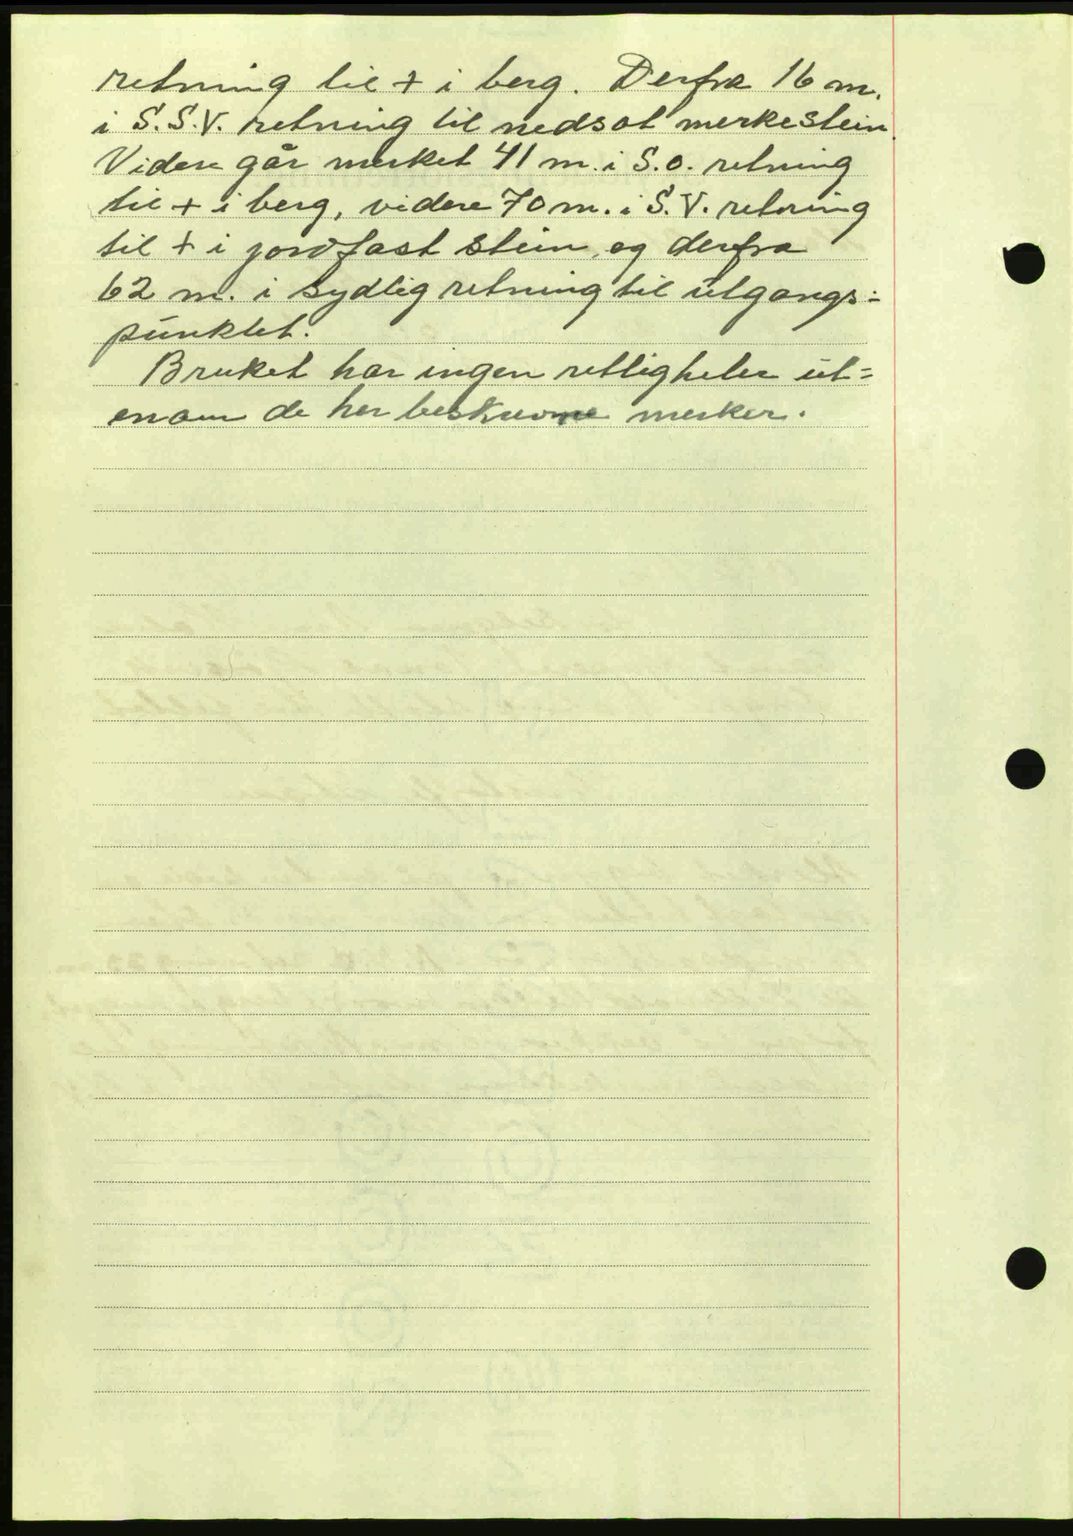 retning til + i berg. Derfra 16 m.
i S.S.V. retning til nedsat merkestein.
Videre går merket 41 m. i S.O. retning
til + i berg, videre 70 m. i S.V. retning
til + i jordfast stein, og derfra
62 m. i sydlig retning til utgangs=
punktet.
Bruket har ingen rettigheter ut=
enom de her beskrevne merker.